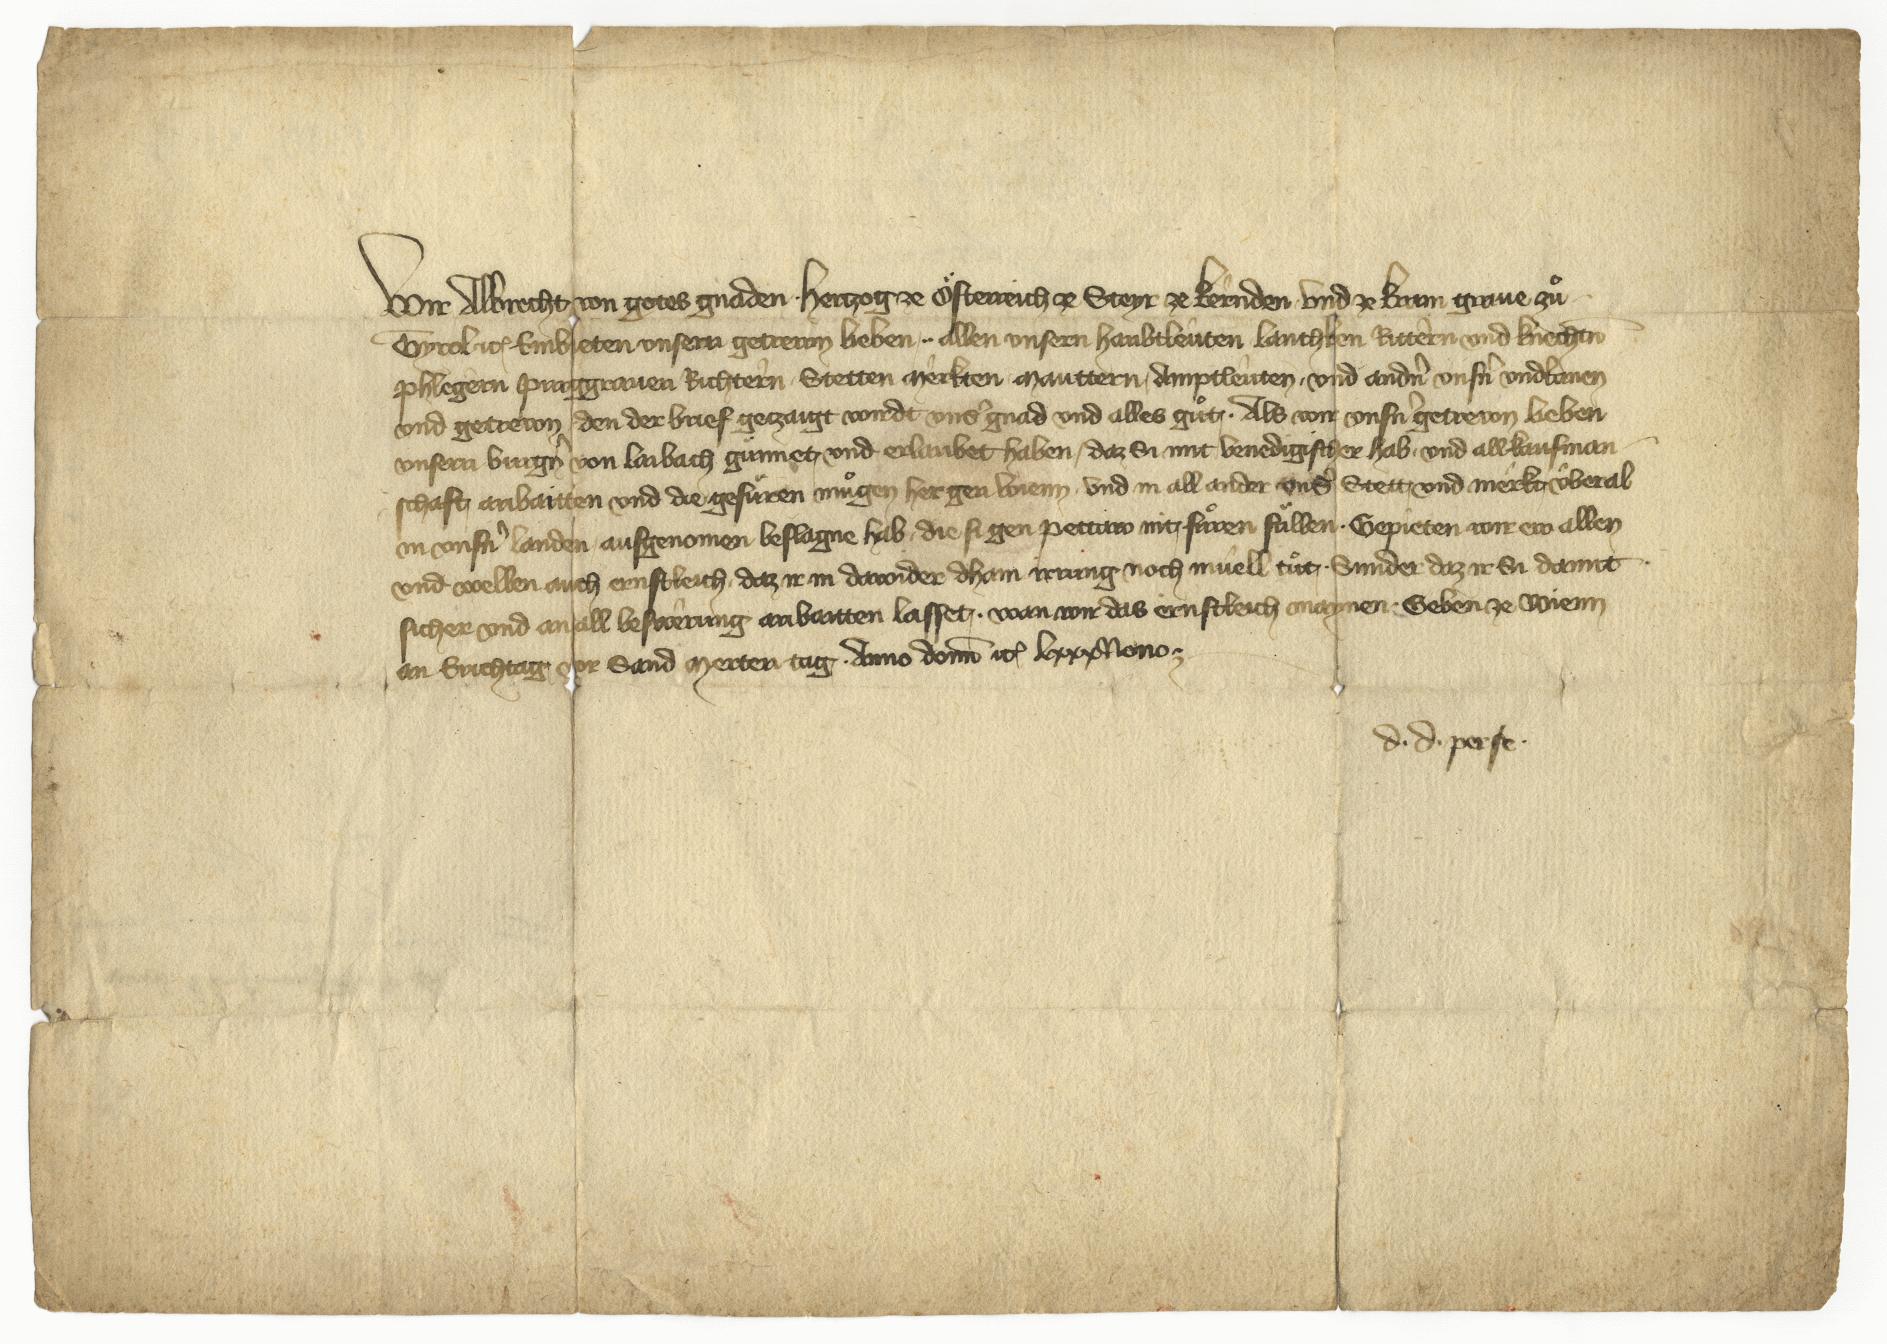 Wir Albrecht von gotes gnaden Hertzog ze Österreich ze Steyr ze kernden vnd ze krain graue zů
Tyrol etc Embieten vnsern getrewn lieben .. allen vnsern haubtleuten lantherren Rittern vnd knechten
phlegern purggrauen Richtern Stetten merkten mauttern Amptleuten vnd andern vnsern vndtanen
vnd getrewn den der brief getzaigt wirdt vnser gnad vnd alles gůt. Als wir vnsern getrewn lieben
vnsern burgern von laibach günnet vnd erlaubet haben / daz Si mit venedigischer hab vnd all kaufman
schaft arbaitten vnd die gefüren mügen her gen wienn vnd in all ander vnser Stett vnd merkt vberal
in vnsern landen ausgenomen beslagne hab die si gen pettaw nit füren süllen. Gepieten wir ew allen
vnd wellen auch ernstleich daz ir in dawider dhain irrung noch müell tůt. Sunder daz ir Si damit
sicher vnd an all beswerung arbaitten lasset. wan wir das ernstleich maynen. Geben ze wienn
an Erichtag vor Sand Merten tag. Anno domini etc lxxxNono
d. d. per se.